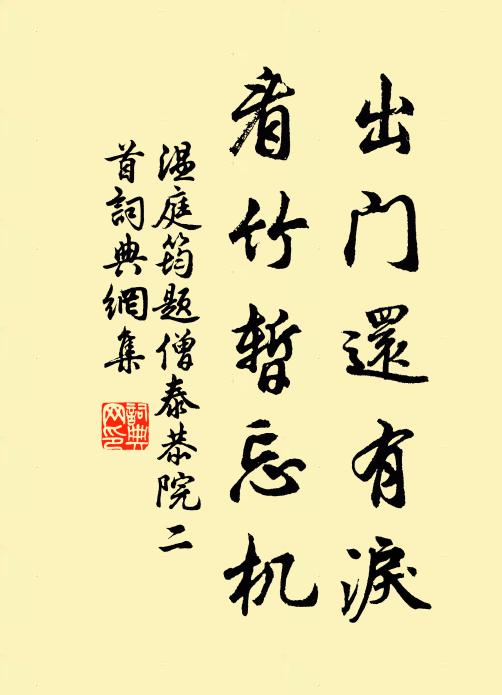 出门還有淚
看竹暫忘机
温庭筠题僧泰恭院二
首詞典網集
詞典
网印